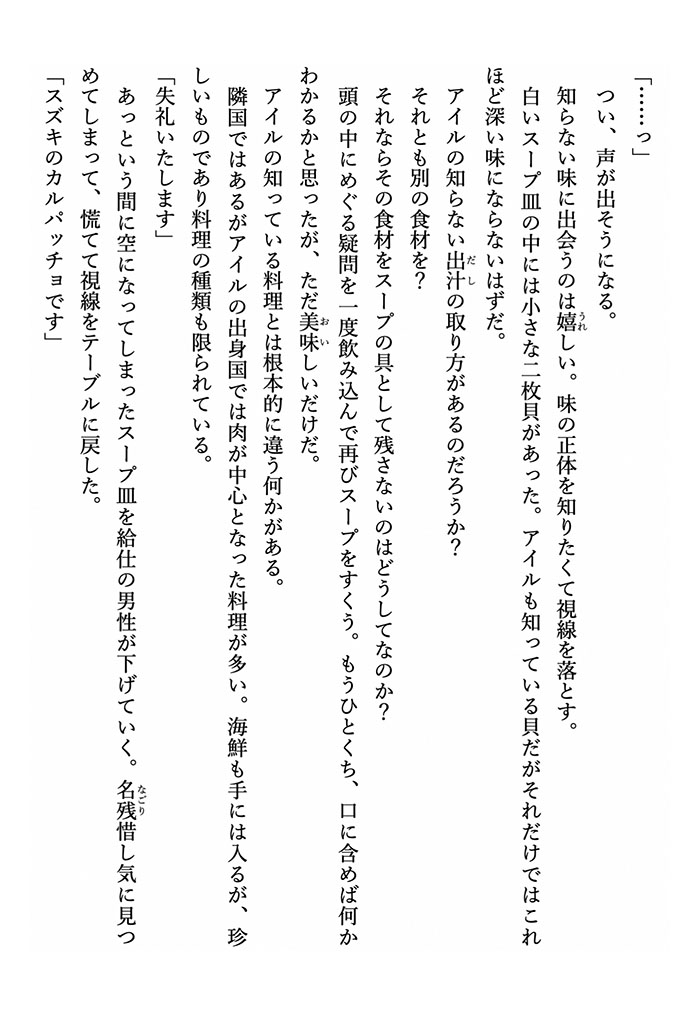 「……っ」
つい、声が出そうになる。
知らない味に出会うのは嬉しい。味の正体を知りたくて視線を落とす。
白いスープ皿の中には小さな二枚貝があった。アイルも知っている貝だがそれだけではこれ
ほど深い味にならないはずだ。
アイルの知らない出汁の取り方があるのだろうか?
それとも別の食材を?
それならその食材をスープの具として残さないのはどうしてなのか?
頭の中にめぐる疑問を一度飲み込んで再びスープをすくう。もうひとくち、口に含めば何か
わかるかと思ったが、ただ美味しいだけだ。
アイルの知っている料理とは根本的に違う何かがある。
隣国ではあるがアイルの出身国では肉が中心となった料理が多い。海鮮も手には入るが、珍
しいものであり料理の種類も限られている。
「失礼いたします」
あっという間に空になってしまったスープ皿を給仕の男性が下げていく。名残惜し気に見つ
めてしまって、慌てて視線をテーブルに戻した。
「スズキのカルパッチョです」